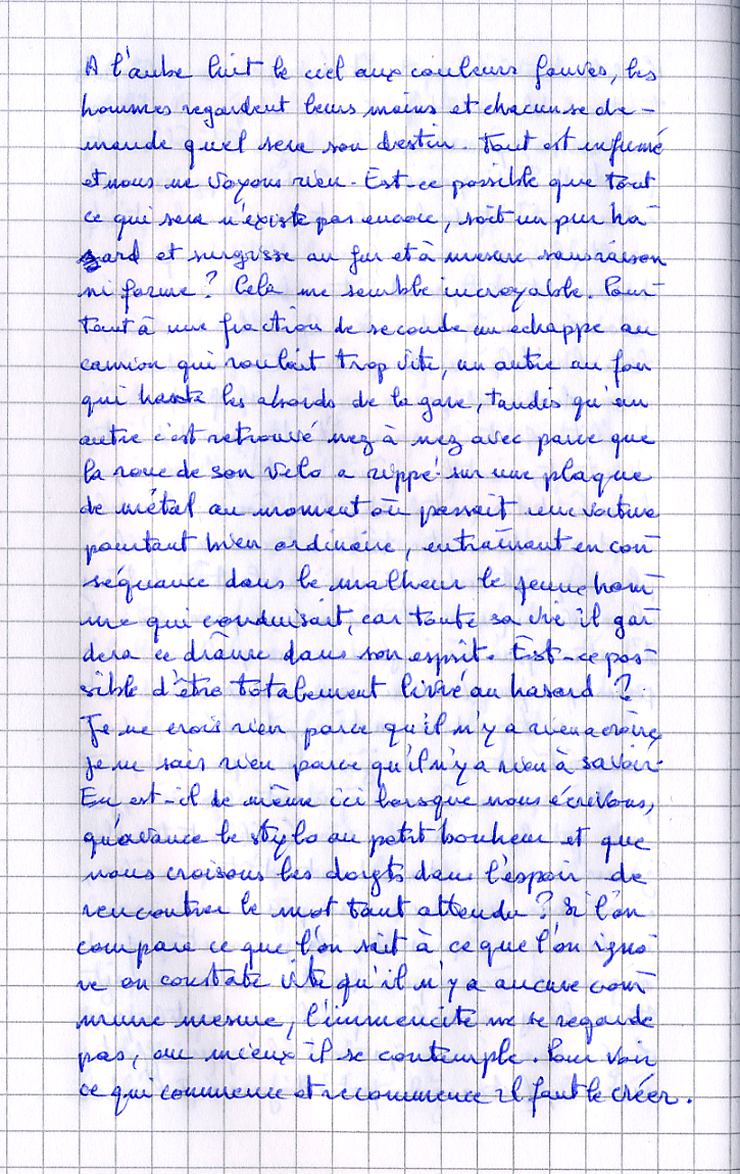 A l'aube luit le ciel aux couleurs fauves, les
hommes regardent leurs mains et chacun se de-
mande quel sera son destin. Tout est enfumé
et nous ne voyons rien. Est-ce possible que tout
ce qui sera n'existe pas encore, soit un pur ha-
sard et surgisse au fur et à mesure sans raison
ni forme ? Cela me semble incroyable. Pour-
tant à une fraction de seconde un échappe au
camion qui roulait trop vite, un autre au fou
qui hante les abords de la gare, tandis qu'un
autre c'est retrouvé nez à nez avec parce que
la roue de son vélo a rippé sur une plaque
de métal au moment où passait une voiture
pourtant bien ordinaire, entraînant en con-
séquance dans le malheur le jeune hom-
me qui conduisait, car toute sa vie il gar-
dera ce drâme dans son esprit. Est-ce pos-
sible d'être totalement livré au hasard ?
Je ne crois rien parce qu'il n'y a rien a croire,
je ne sais rien parce qu'il n'y a rien à savoir.
En est-il de même ici lorsque nous écrivons,
qu'avance le stylo au petit bonheur et que
nous croisons les doigts dans l'espoir de
rencontrer le mot tant attendu ? Si l'on
compare ce que l'on sait à ce que l'on igno-
re on constate vite qu'il n'y a aucune com-
mune mesure, l'immencité ne se regarde
pas, ou mieux il se contemple. Pour voir
ce qui commence et recommence il faut le créer.